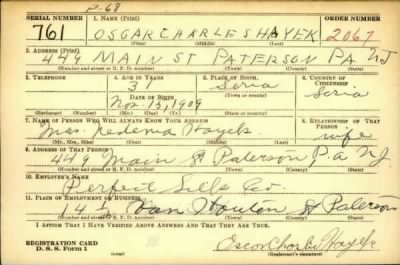 P-68
SERIAL NUMBER 1. NAME (Print) ORDER NUMBER
761 OSCAR CHARLES HAYEK 2067
(First) (Middle) (Last)
2. ADDRESS (Print)
449 MAIN ST PATERSON PA NJ
(Number and street or R. F. D. number) (Town) (County) (State)
3. TELEPHONE 4. AGE IN YEARS 5. PLACE OF BIRTH 6. COUNTRY OF CITIZENSHIP
3 Seria Seria
DATE OF BIRTH
Nov. 13, 1909
(Exchange) (No.) (Mo.) (Day) (Yr.) (Town or county) (State or country)
7. NAME OF PERSON WHO WILL ALWAYS KNOW YOUR ADDRESS 8. RELATIONSHIP OF THAT PERSON
Mrs. Nedema Hayek wife
(Mr., Mrs., Miss) (First) (Middle) (Last)
9. ADDRESS OF THAT PERSON
449 Main St Paterson P.a NJ
(Number and street or R. F. D. number) (Town) (County) (State)
10. EMPLOYER'S NAME
Perfect Silk Co.
11. PLACE OF EMPLOYMENT OR BUSINESS
Van Houten St Paterson
(Number and street or R. F. D. number) (Town) (County) (State)
I AFFIRM THAT I HAVE VERIFIED ABOVE ANSWERS AND THAT THEY ARE TRUE.
REGISTRATION CARD
D. S. S. Form 1
Oscar Charles Hayek
(Registrant's signature)